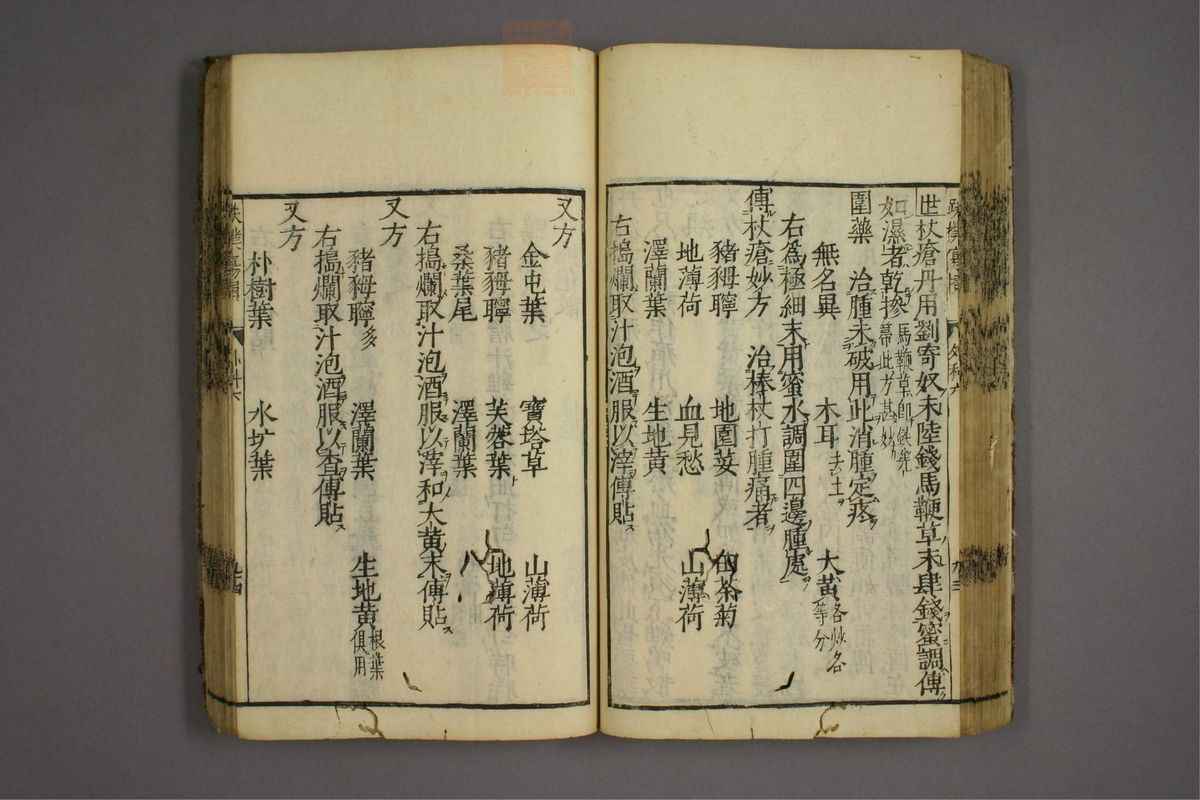 世杖瘡丹用劉寄奴末陸錢馬鞭草末肆錢蜜調傅
如濕者乾摻
馬鞭草即鉄
蒂此方甚妙
圍藥 治腫未破用此消腫定疼
無名異 木耳去土 大黃各炒各等分
右為極細末用蜜水調圍四邊腫處
傅杖瘡妙方 治棒杖打腫痛者
豬姆聹 地園荽 茶菊
地薄荷 血見愁 山薄荷
澤蘭葉 生地黃
右搗爛取汁泡酒服以滓傅貼
又方
金屯葉 寶塔草 山薄荷
豬姆聹 芙蓉葉 地薄荷
桑葉尾 澤蘭葉
右搗爛取汁泡酒服以滓和大黃末傅貼
又方
豬姆聹多 澤蘭葉 生地黃根葉俱用
右搗爛取汁泡酒服以查傅貼
又方
朴樹葉 水圹葉